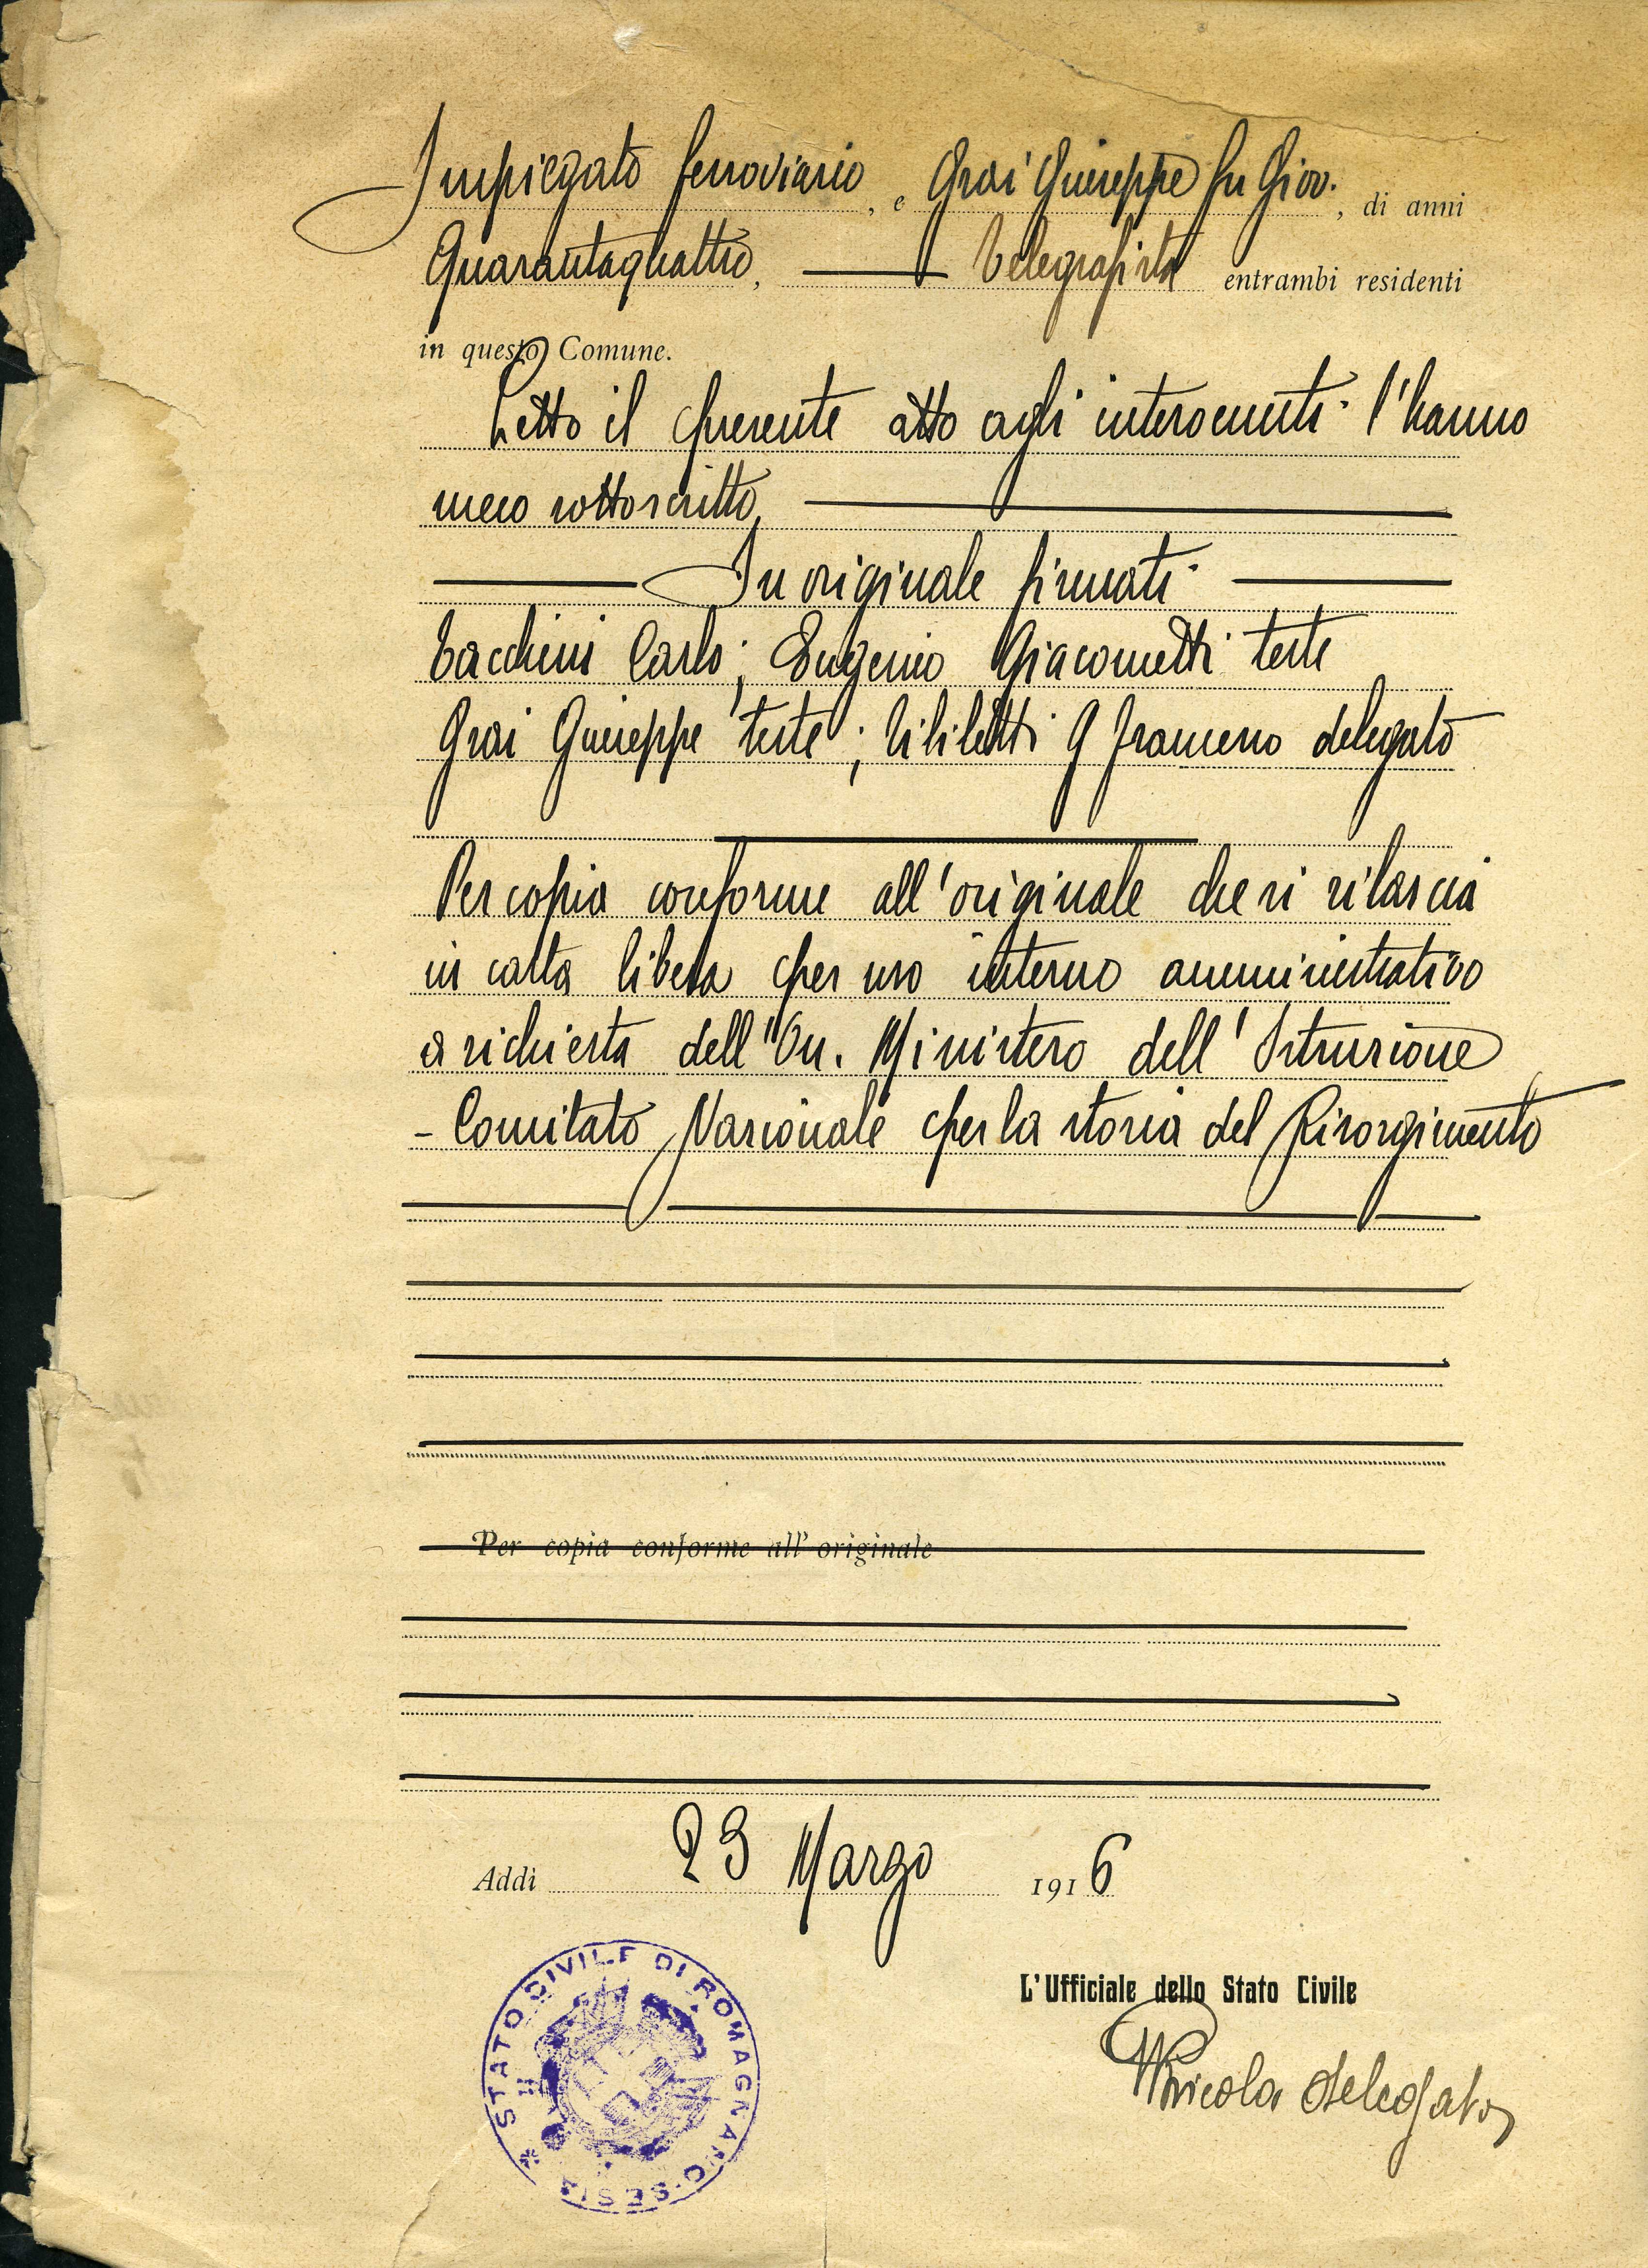 Impiegato ferroviario, e Grai Giuseppe fu Giov., di anni
Quarantaquattro, Telegrafista entrambi residenti
in questo Comune.
Letto il presente atto agli intervenuti l'hanno
meco sottoscritto.
In originale firmati
Tacchini Carlo; Eugenio Giacometti teste
Grai Giuseppe teste; G Francesco delegato
Per copia conforme all'originale che si rilascia
in carta libera per uso interno amministrativo
a richiesta dell'On. Ministero dell'Istruzione
- Comitato Nazionale per la storia del Risorgimento
Per copia conforme all'originale
Addì 23 Marzo 1916
STATO CIVILE DI ROMAGNANO-SESIA
L'Ufficiale dello Stato Civile
delegato